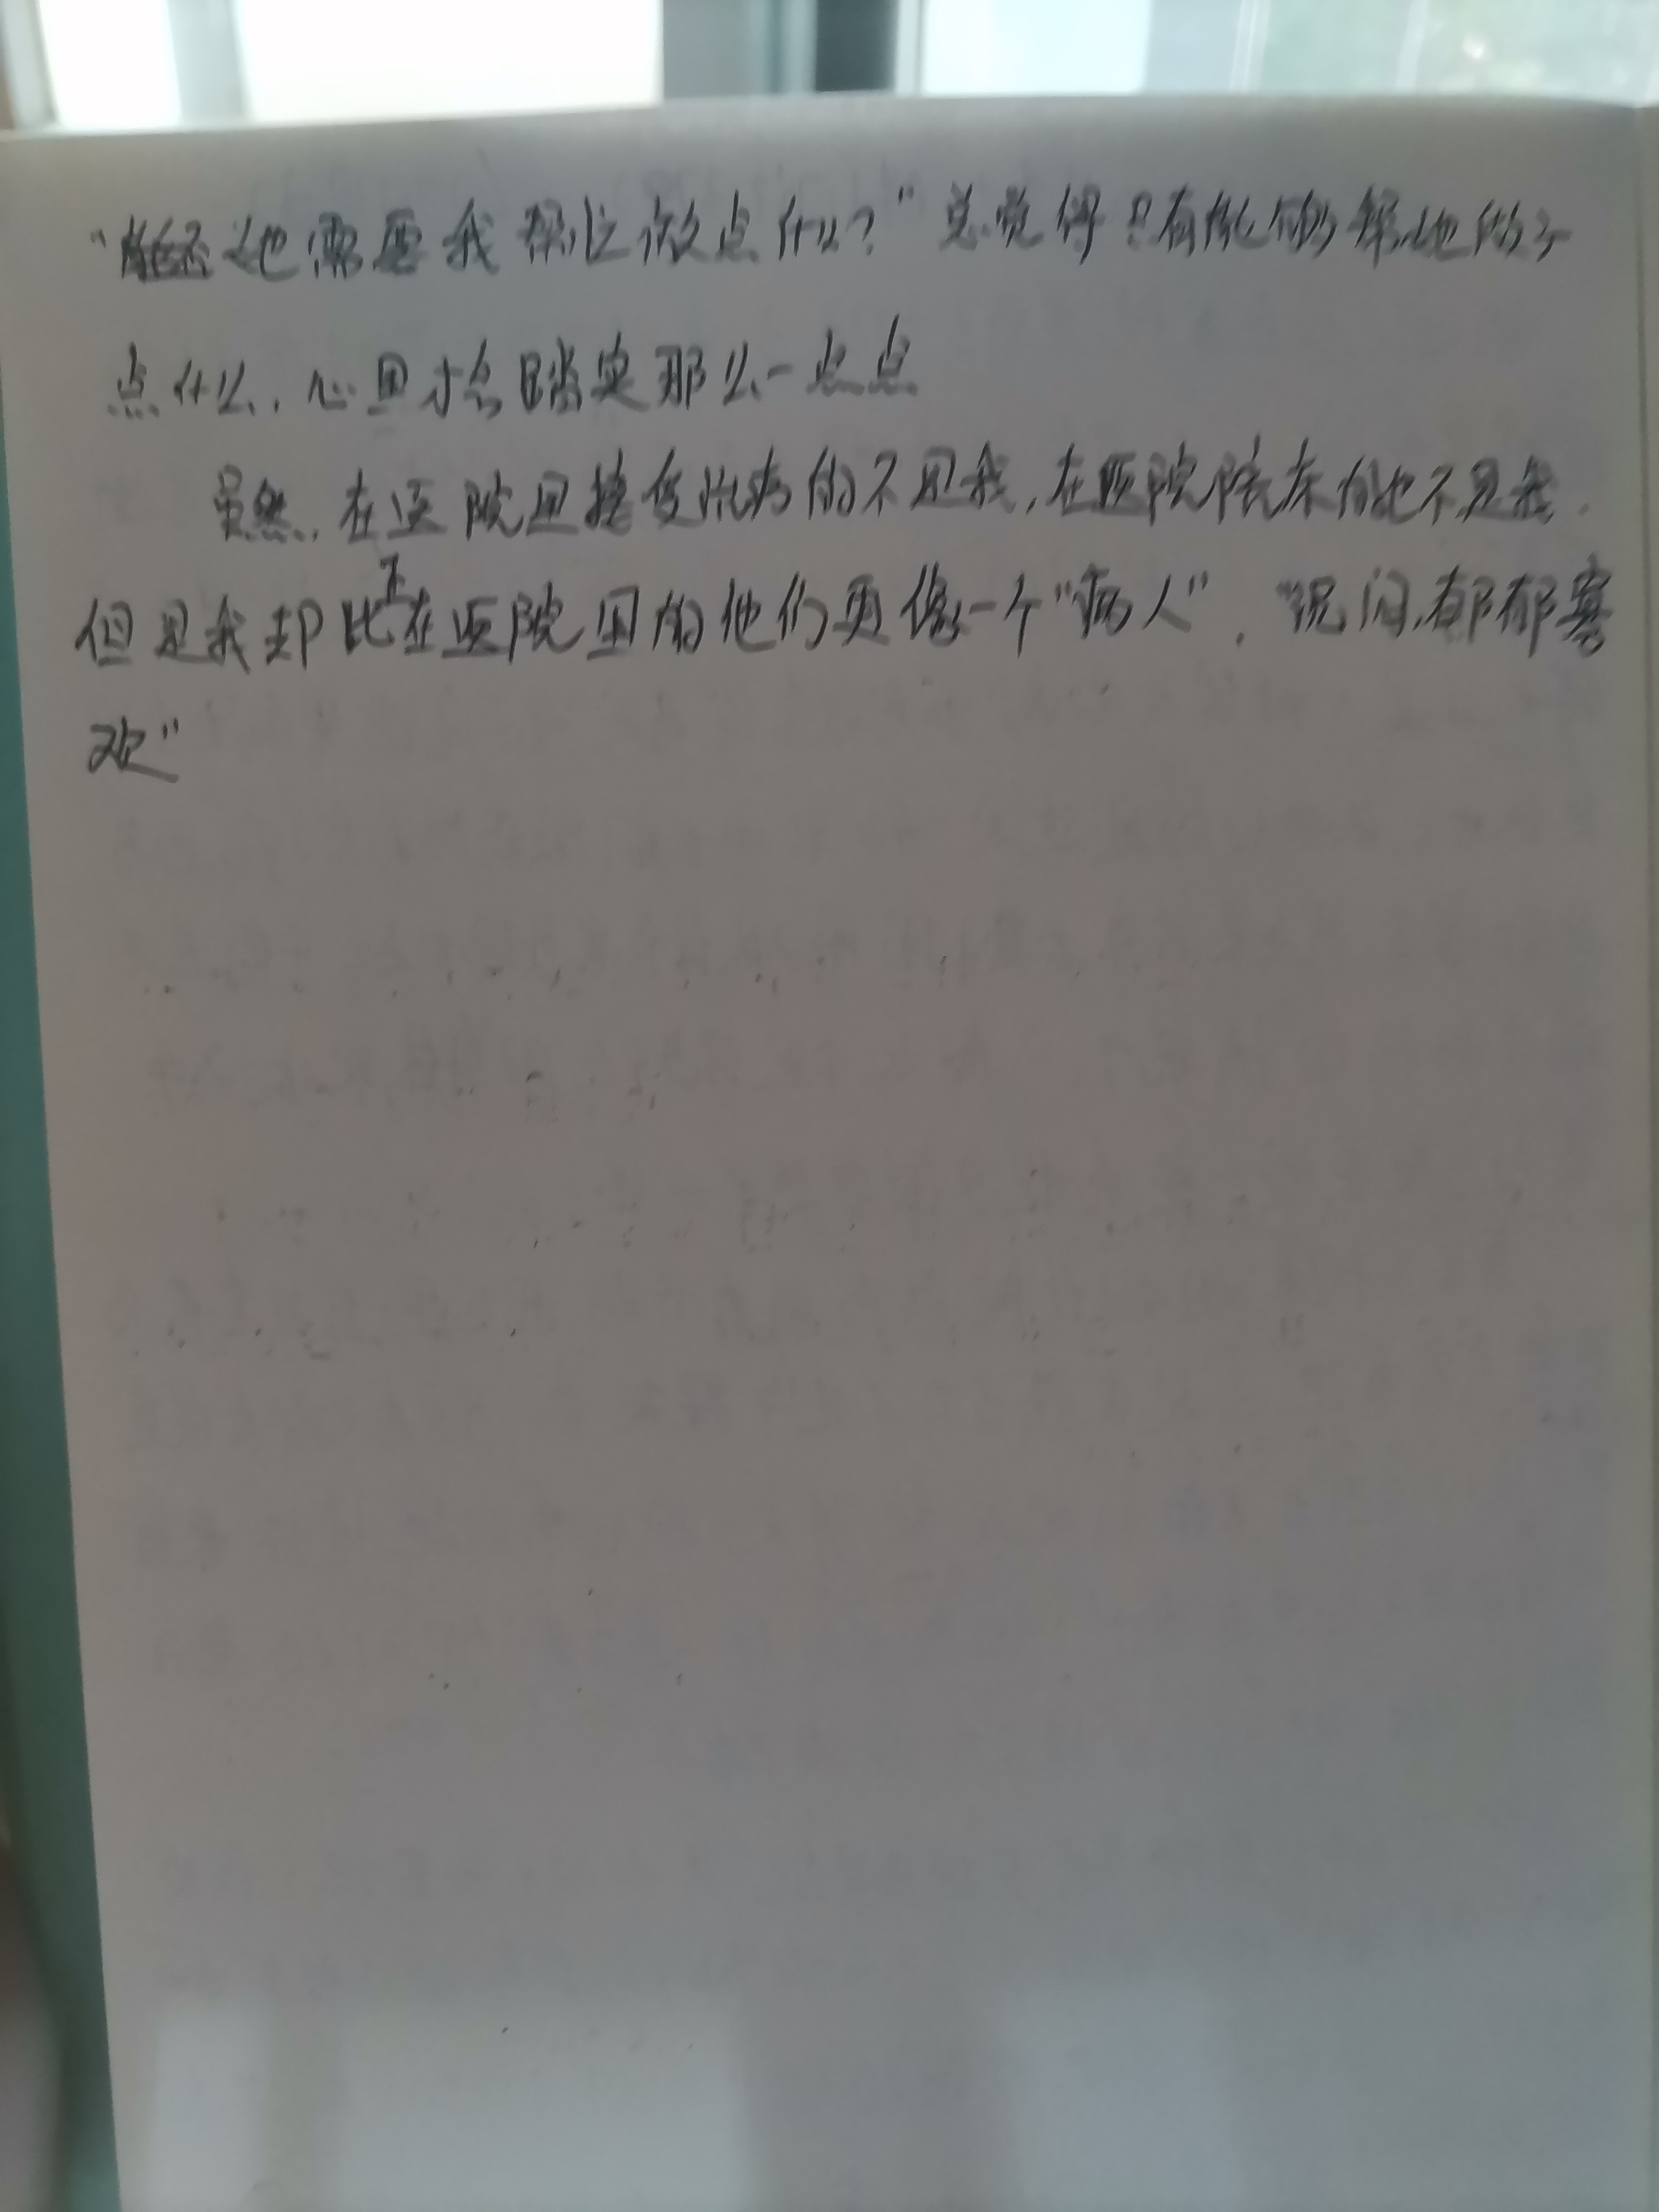 她需要我帮忙做点什么？"总觉得只有能够帮她做
点什么，心里才会踏实那么一点点
虽然，在医院里接受治疗的不是我，在医院院床的也不是我.
但是我却比正在医院里的他们更像一个"病人"."沉闷，郁郁寡
欢"